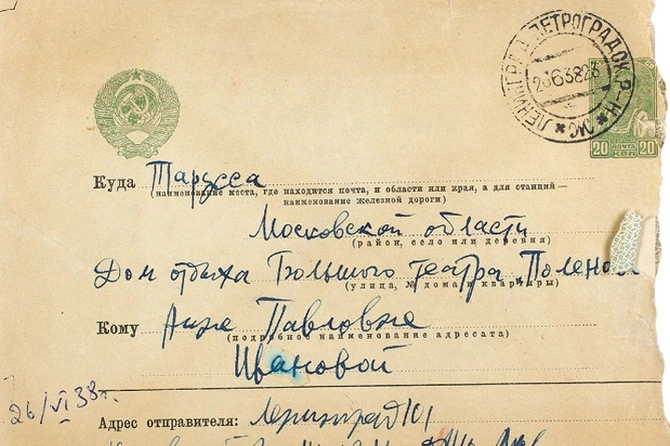 ЛЕНИНГРАД ПЕТРОГРАДСК. Р-Н
20 ПОЧТА 20
Куда Тарусса
(наименование места, где находится почта, и области или края, а для станций —
наименование железной дороги)
Московской области
(район, село или деревня)
Дом отдыха Большого театра „Полено
(улица, № дома и квартиры)
Кому Анне Павловне
(подробное наименование адресата)
Ивановой
26/VI 38 г.
Адрес отправителя: Ленинград